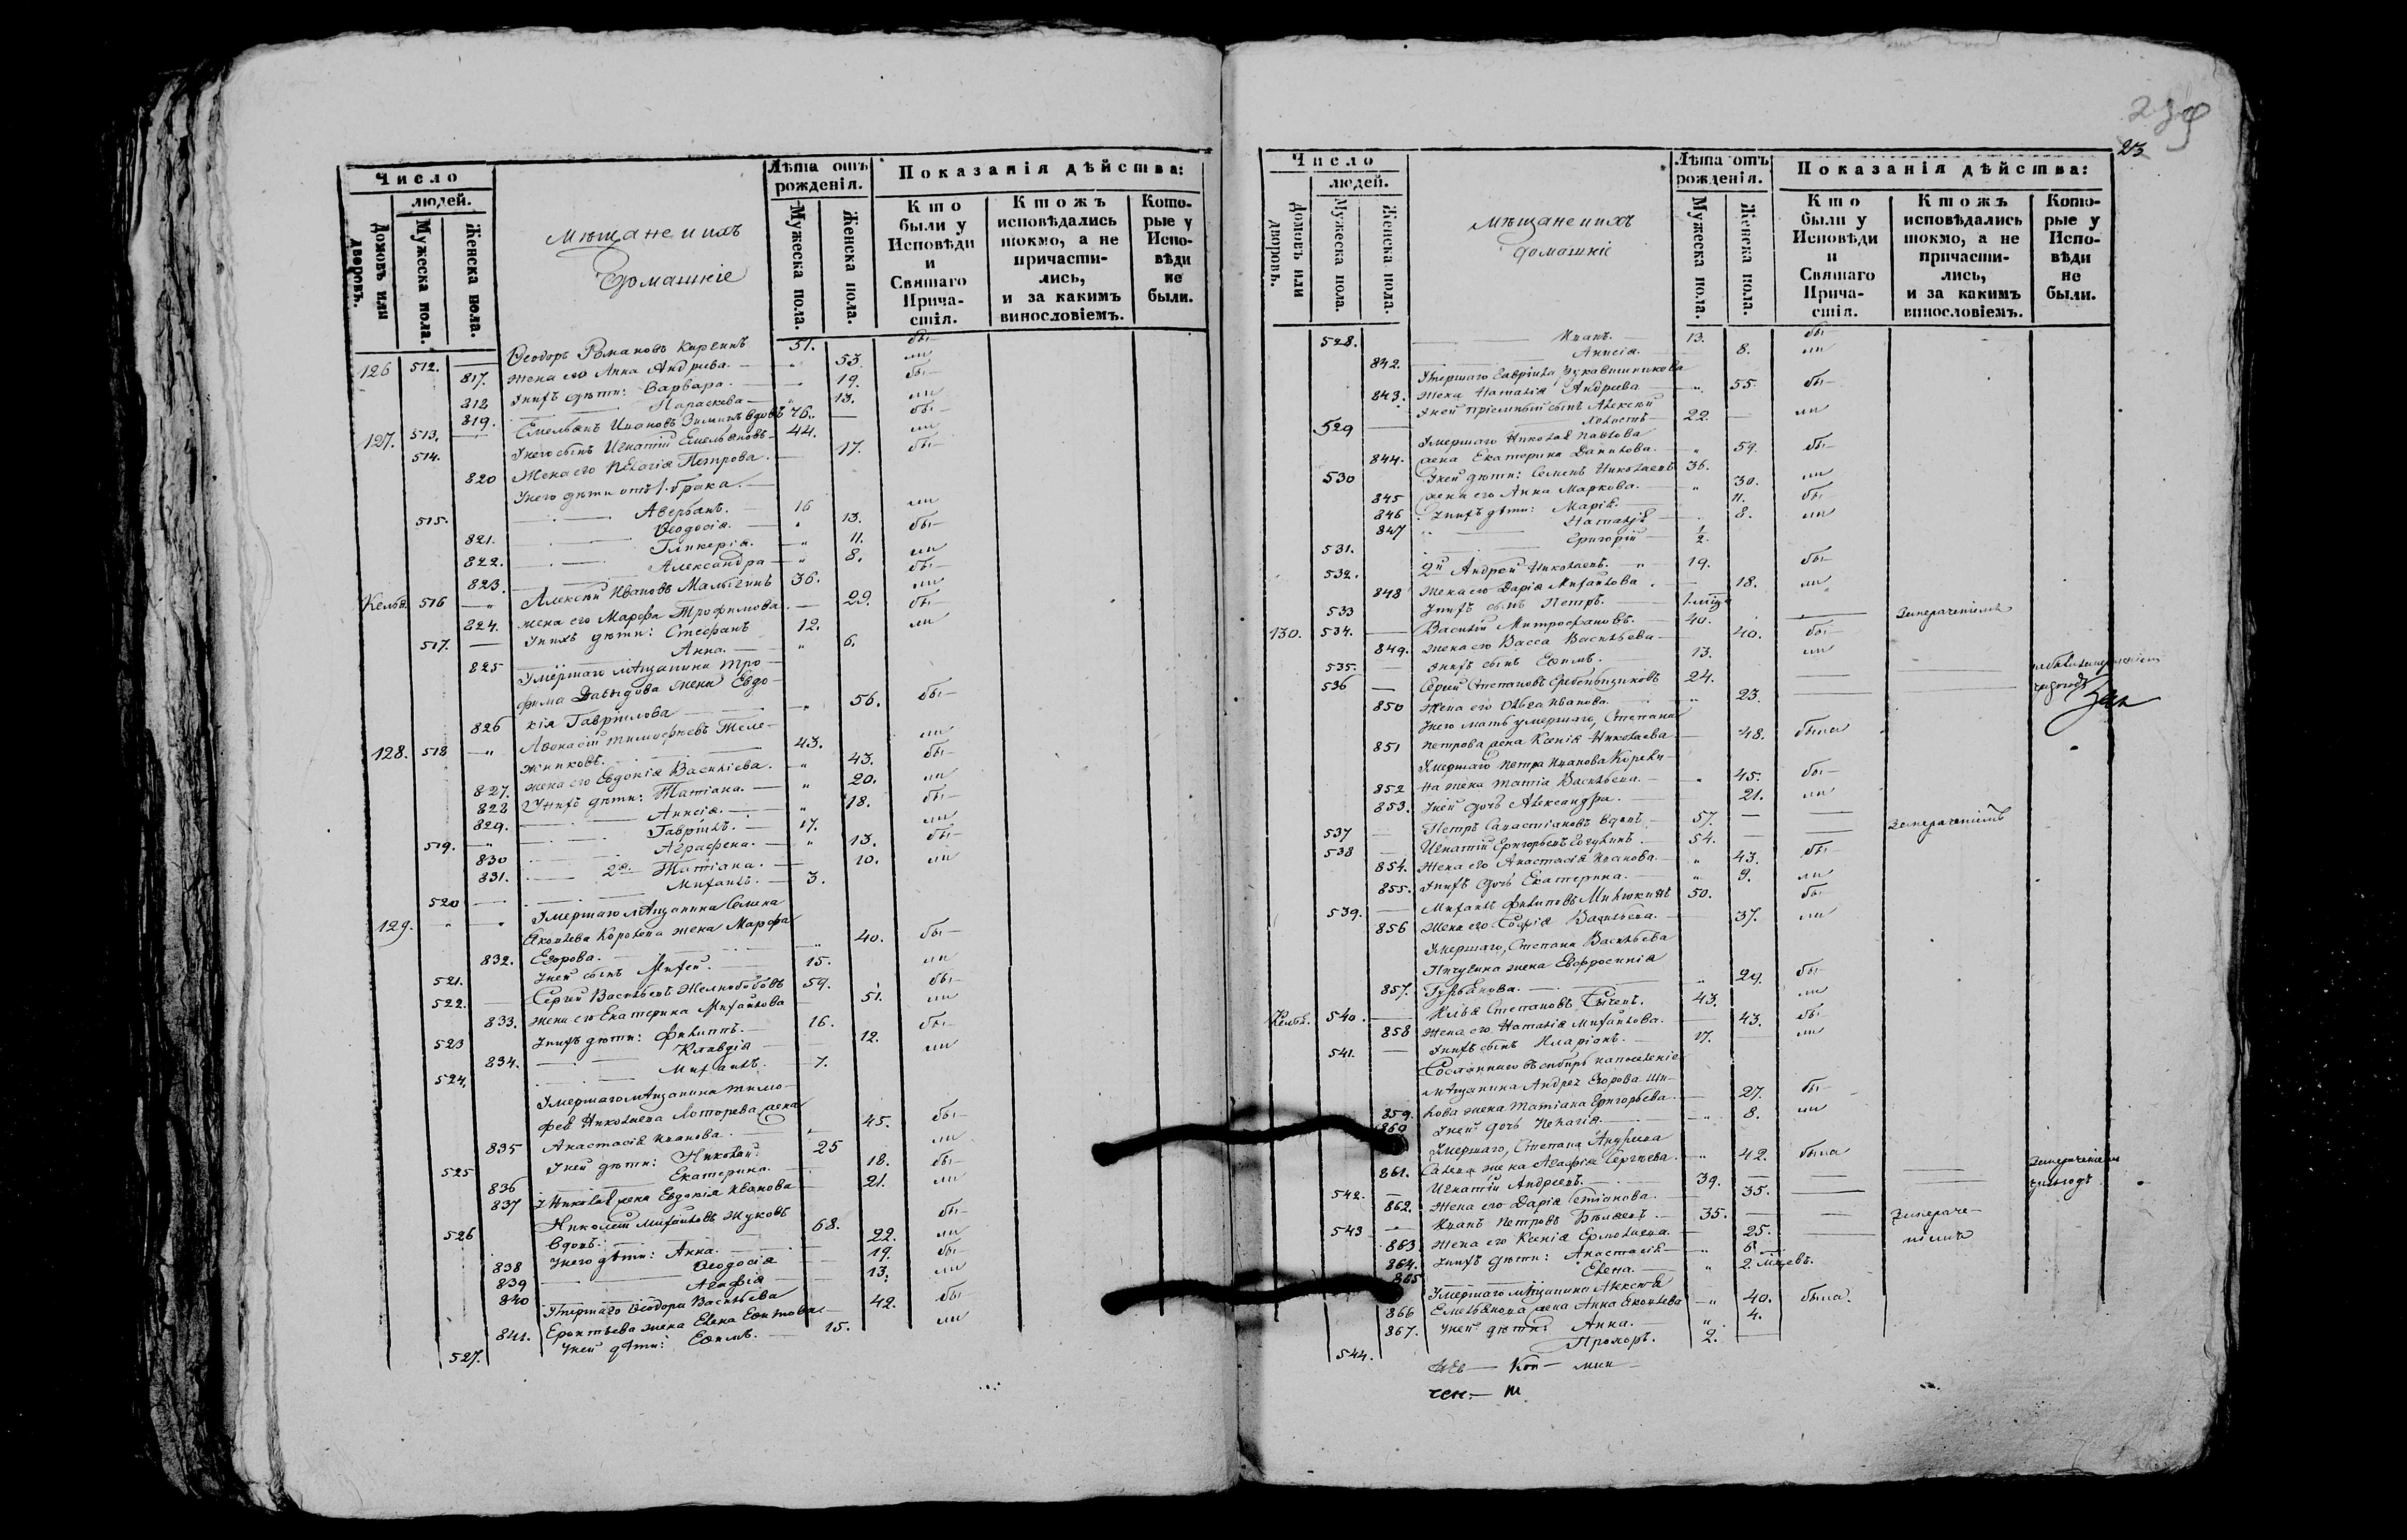 Число
людей.
Домовъ или дворовъ.
Мужеска пола.
Женска пола.
Мѣщане и ихъ
домашніе
Лѣта отъ рожденія.
Мужеска пола.
Женска пола.
Показанія дѣйства:
Кто были у Исповѣди и Святаго Прича- стія.
Ктожъ исповѣдались токмо, а не причасти- лись, и за какимъ винословіемъ.
Кото- рые у Испо- вѣди не были.
126 512. — Ѳеодоръ Романовъ 51. бы-
817. жена его Анна Андреева. — 53. ли
818 У нихъ дѣти: Варвара. — 19. бы-
819. Параскева — 13. ли
127. 513. — Емельянъ Ивановъ Зиминъ вдовъ 76. — бы-
514. У него сынъ Игнатій Емельяновъ — 44. ли
820 Жена его Пелагія Петрова. — 17. бы-
У него дѣти отъ 1. брака. —
515. Аверьянъ. — 16 ли
821. Ѳеодосія. — 13. бы-
822. Гликерія. — 11. ли
823. Александра — 8. бы-
516 — Алексѣй Ивановъ Малыгинъ 36. ли
824. жена его Марѳа Трофимова. — 29. бы-
517. — У нихъ дѣти: Стефанъ 12. ли
825 Анна. — 6.
Умершаго мѣщанина Тро-
фима Давыдова жена Евдо-
826 кія Гаврилова — 56. бы-
128. 518 — Аѳанасій Тимофѣевъ Теле-
жниковъ. 43. ли
827. жена его Евдокія Василіева. — 43. бы-
828 У нихъ дѣти: Татіана. — 20. ли
829. Анисія. — 18. бы-
519. Гавріилъ. — 17. ли
830 Аграфена. — 13. бы-
831. 2я Татіана. — 10. ли
520 Михаилъ. — 3.
129. Умершаго мѣщанина Семена
Яковлева Королева жена Марѳа
832. Егорова. — 40. бы-
521. У ней сынъ Михей. — 15. ли
522. — Сергій Васильевъ Желнободовъ 59. бы-
833. жена его Екатерина Михайлова 51. ли
523 У нихъ дѣти: Филиппъ. — 16. бы-
834. Клавдія — 12. ли
524. Михаилъ. — 7.
Умершаго мѣщанина Тимо-
фея Николаева Лоторева жена
835 Анастасія Иванова. — 45. бы-
525 У ней дѣти: Николай. 25 ли
836 Екатерина. — 18. бы-
837 У Николая жена Евдокія Иванова 21. ли
526 Николай Михайловъ Жуковъ
вдовъ. — 68. бы-
838 У него дѣти: Анна. — 22. ли
839 Ѳеодосія 19. бы-
840 Агафія — 13. ли
Умершаго Ѳеодора Васильева
841. жена Елена Еѳимова. — 42. бы-
527. У ней дѣти: Еѳимъ. — 15. ли
23
Число
людей.
Домовъ или дворовъ.
Мужеска пола.
Женска пола.
Мѣщане и ихъ
домашніе
Лѣта отъ рожденія.
Мужеска пола.
Женска пола.
Показанія дѣйства:
Кто были у Исповѣди и Святаго Прича- стія.
Ктожъ исповѣдались токмо, а не причасти- лись, и за какимъ винословіемъ.
Кото- рые у Испо- вѣди не были.
528. — Иванъ. — 13. бы-
842. Анисія. — 8. ли
Умершаго Гавріила Рукавишникова
843. жена Наталія Андреева — 55. бы-
У ней пріемный сынъ Алексѣй
529 — Холостъ — 22. — ли
Умершаго Николая Павлова
844. жена Екатерина Данилова. — 59. бы-
530 У ней дѣти: Семенъ Николаевъ 36. ли
845 жена его Анна Маркова. — 30. бы-
846 У нихъ дѣти: Марія. — 11. ли
847 Наталія — 8.
531. Григорій — 2.
532. 2й Андрей Николаевъ. — 19. бы-
848 Жена его Дарія Михайлова. — 18. ли
533 У нихъ сынъ Петръ. —
130. 534. — Василій Митрофановъ. — 40. —
849. жена его Васса Васильева — 40. бы-
535. — У нихъ сынъ Еѳимъ. — 13. ли
536 — Сергій Степановъ Гребенщиковъ 24. —
850 Жена его Ольга Иванова. — 23. —
У него мать умершаго Степана
851 Петрова жена Ксенія Николаева 48. была
Умершаго Петра Иванова
852 жена Татіа Васильева. — 45. бы-
853. У ней дочь Александра. — 21. ли
537 — Петръ вдовъ — 57. — —
538 — Игнатій Григорьевъ — 54. —
854. Жена его Анастасія Иванова. — 43. бы-
855. У нихъ дочь Екатерина. — 9. ли
539. — Михаилъ Филиповъ Милюкинъ 50. бы-
856 жена его Софія Васильева. — 37. ли
Умершаго Степана Васильева
Пичугина жена Евфросинія
857. — 29. бы-
540. — Илья Степановъ Сычевъ. 43. ли
858 Жена его Наталія Михайлова. — 43. бы-
541. — У нихъ сынъ Иларіонъ. — 17. — ли
Сосланнаго въ сибирь на поселеніе
мѣщанина Андрея Егорова Ши-
859. лова жена Татіана Григорьева. — 27. бы-
860 У ней дочь Пелагія. — 8. ли
Умершаго Степана Андреева
861. жена Агафія Сергѣева. — 42. была
542. — Игнатій Андреевъ. — 39. —
862. Жена его Дарія — 35. —
543 — Иванъ Петровъ Бѣляевъ — 35. —
863 жена его Ксенія Ермолаева. — 25. —
864. У нихъ дѣти: Анастасія — 6.
865 Елена. — 2. мцевъ.
Умершаго мѣщанина Алексѣя
866 Емельянова жена Анна Яковлева — 40. была.
867. У ней дѣти: Анна. — 4.
544. Прохоръ. 2.